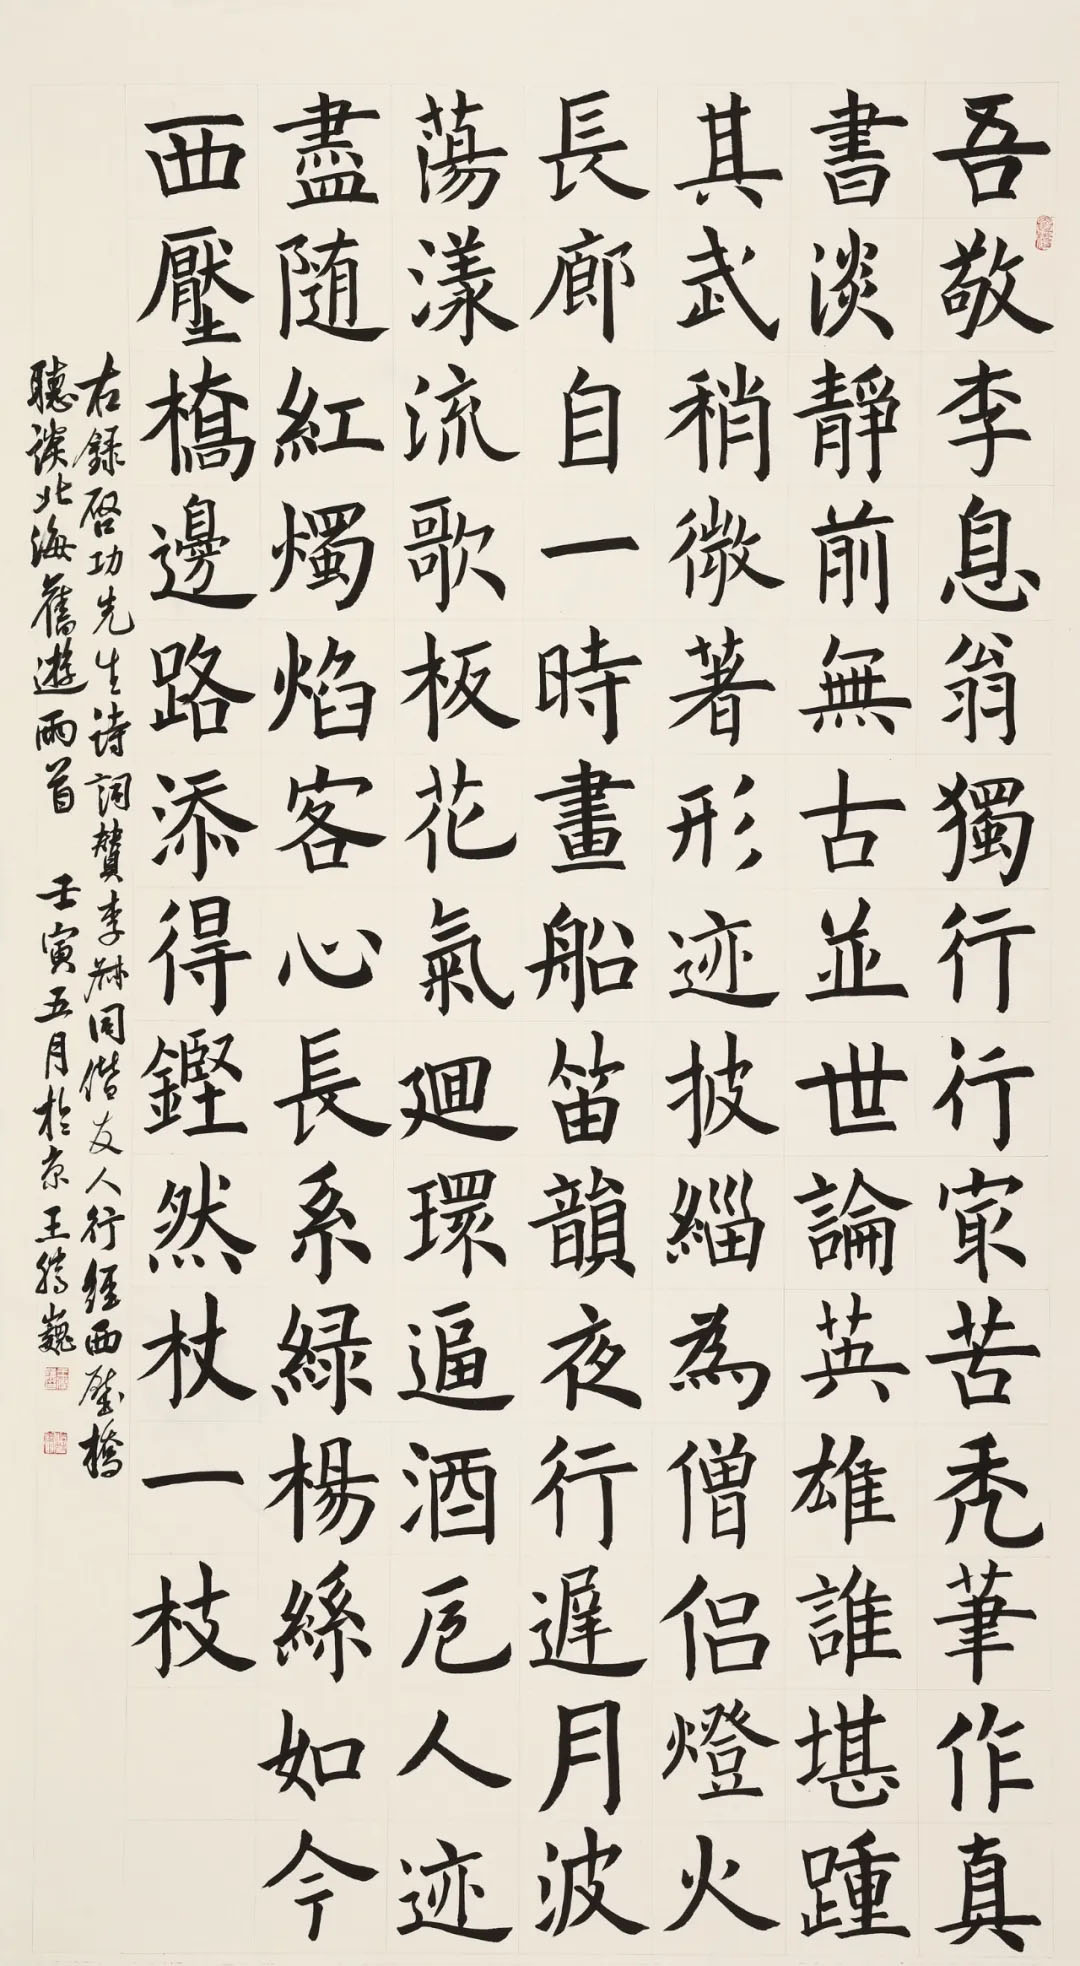 吾敬李息翁獨行行冣苦秃筆作真
書淡靜前無古並世論英雄誰堪踵
其武稍微著形迹披緇為僧侣燈火
長廊自一時畫船笛韻夜行遲月波
蕩漾流歌板花氣迴環逼酒卮人迹
盡随紅燭焰客心長系緑楊絲如今
西壓橋邊路添得鏗然杖一枝
右録启功先生诗詞贊李叔同偕友人行經西壓橋
聽談北海舊遊兩首 壬寅五月於京王腾巍